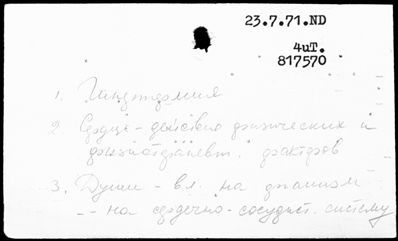 23.7.71.ND
4иT.
817570
1. Гипертермия
2. Сердце - действие физических и
физиотерапевт. факторов
3. Души - вл. на организм
-- на сердечно-сосудист. систему